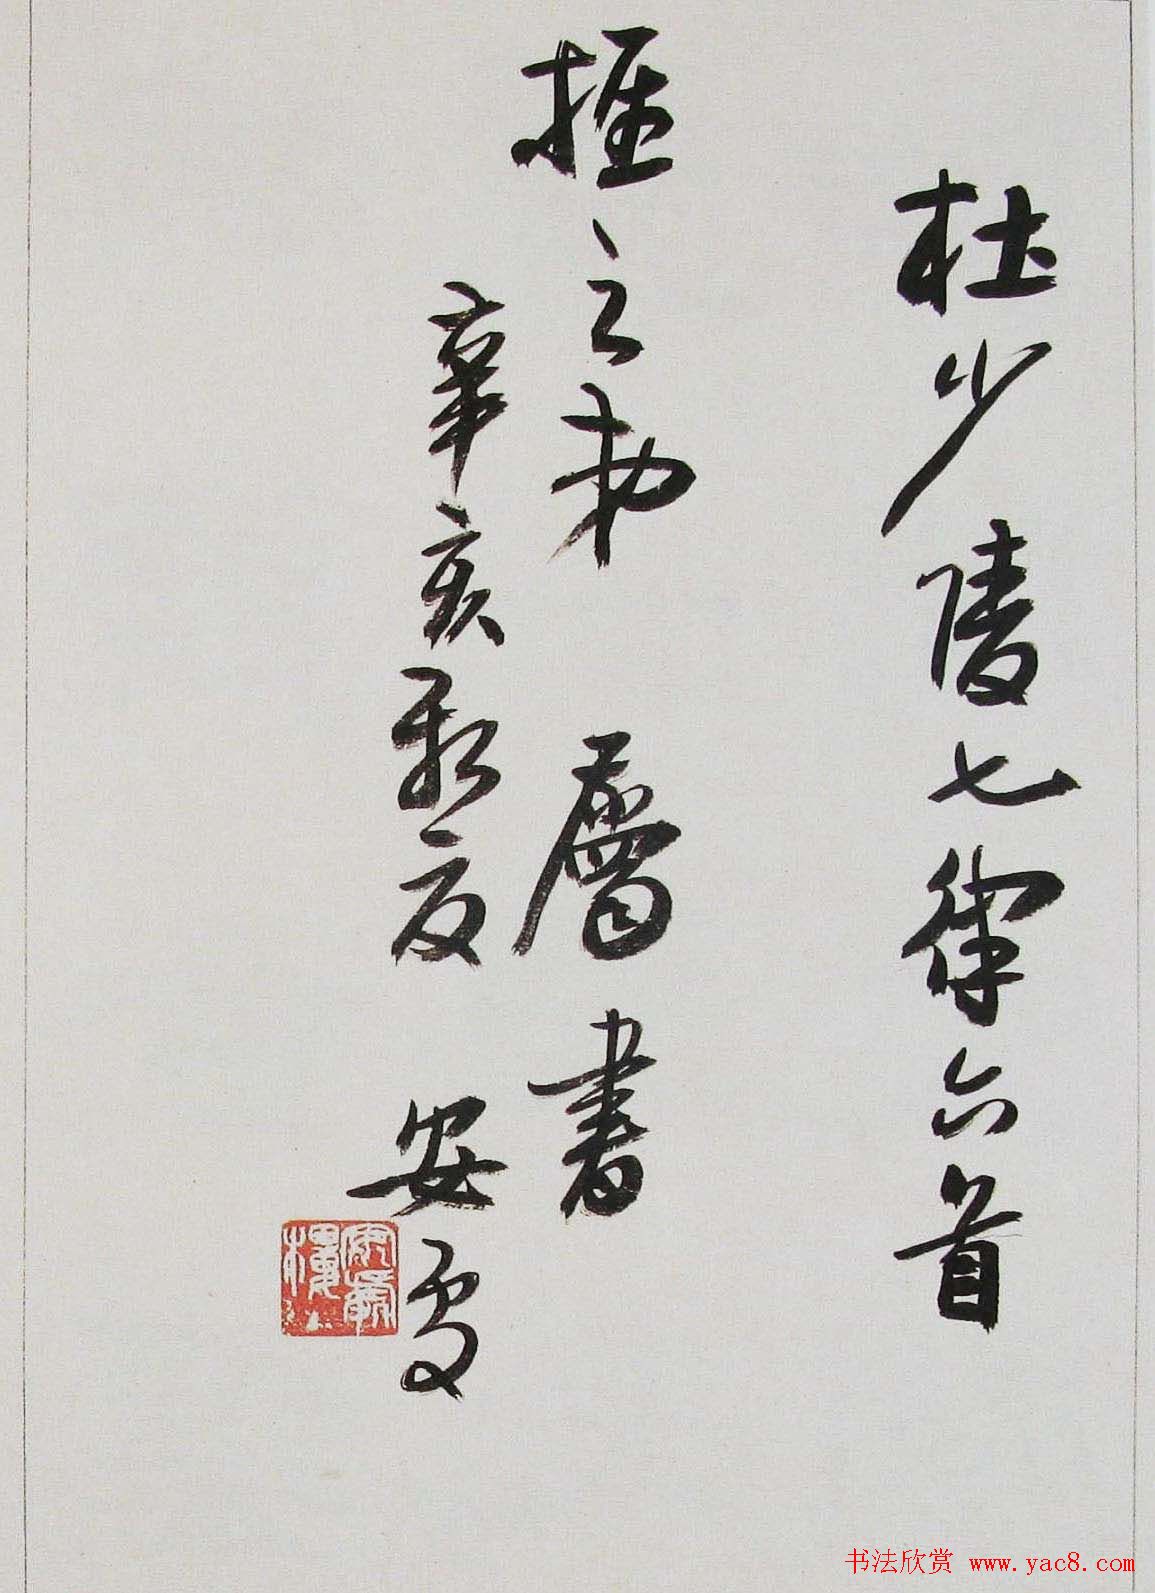 杜少陵七律六首
握之弟 屬書
辛亥新夏 安處
书法欣赏 www.yac8.com